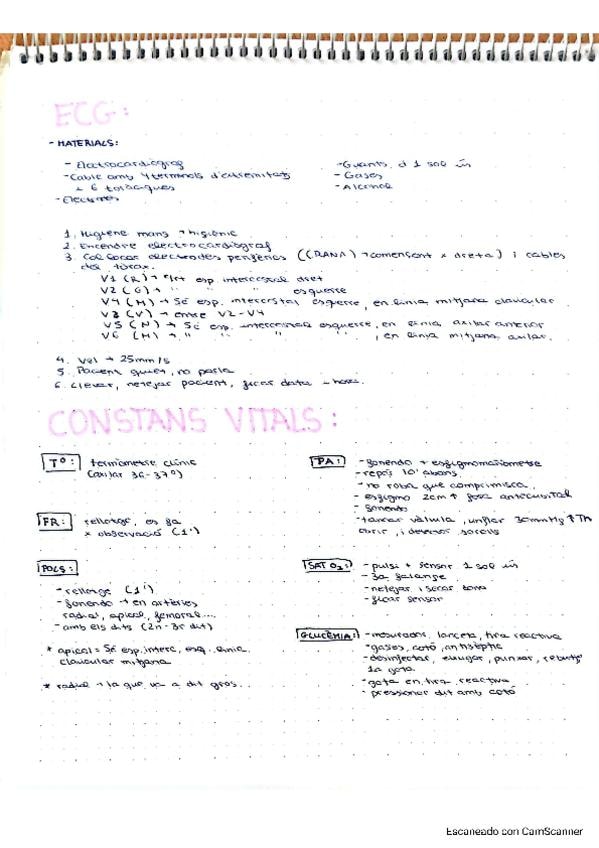 ECG:
- MATERIALS:
- Electrocardiograf
- Cable amb 4 terminals d'extremitats
+ 6 toràciques
- Elèctrodes
- Guants d'1 sol ús
- Gases
- Alcohol
1. Higiene mans → higiènic
2. Encendre electrocardiògraf
3. Col·locar electrodes perifèrics ((RANA) → començant x dreta) i cables
del tòrax.
V1 (R) → 4rt esp. intercostal dret
V2 (G) → " " esquerre
V4 (M) → 5é esp. intercostal esquerre, en línia mitjana clavicular
V3 (V) → entre V2-V4
V5 (N) → 5é esp. intercostal esquerre, en línia axilar anterior
V6 (M) → " " " , en línia mitjana axilar.
4. Vel → 25mm/s
5. Pacient quiet, no parla
6. Llevar, netejar pacient, ficar data + hora.
CONSTANS VITALS:
Tº: termòmetre clínic
(axilar 36-37º)
FR: rellotge, es fa
x observació (1')
POLS:
- rellotge (1')
- fonendo → en artèries
radial, apical, femoral...
- amb els dits (2n-3r dit)
* apical = 5é esp. interc, esq. línia
clavicular mitjana
* radial → la que va a dit gros.
PA: - fonendo + esfigmomanòmetre
- repòs 10' abans
- no roba que comprimisca
- esfigmo 2cm ↑ fosa antecubital
- fonendo
- tancar vàlvula, unflar 30mmHg ↑
obrir, i detectar sorolls
SAT O2: - pulsi + sensor 1 sol ús
- 3a falange
- netejar i secar zona
- ficar sensor
GLUCÈMIA: - mesurador, lanceta, tira reactiva
- gases, cotó, antisèptic
- desinfectar, eixugar, punxar, rebutjar
1a gota.
- gota en tira reactiva
- pressionar dit amb cotó
Escaneado con CamScanner